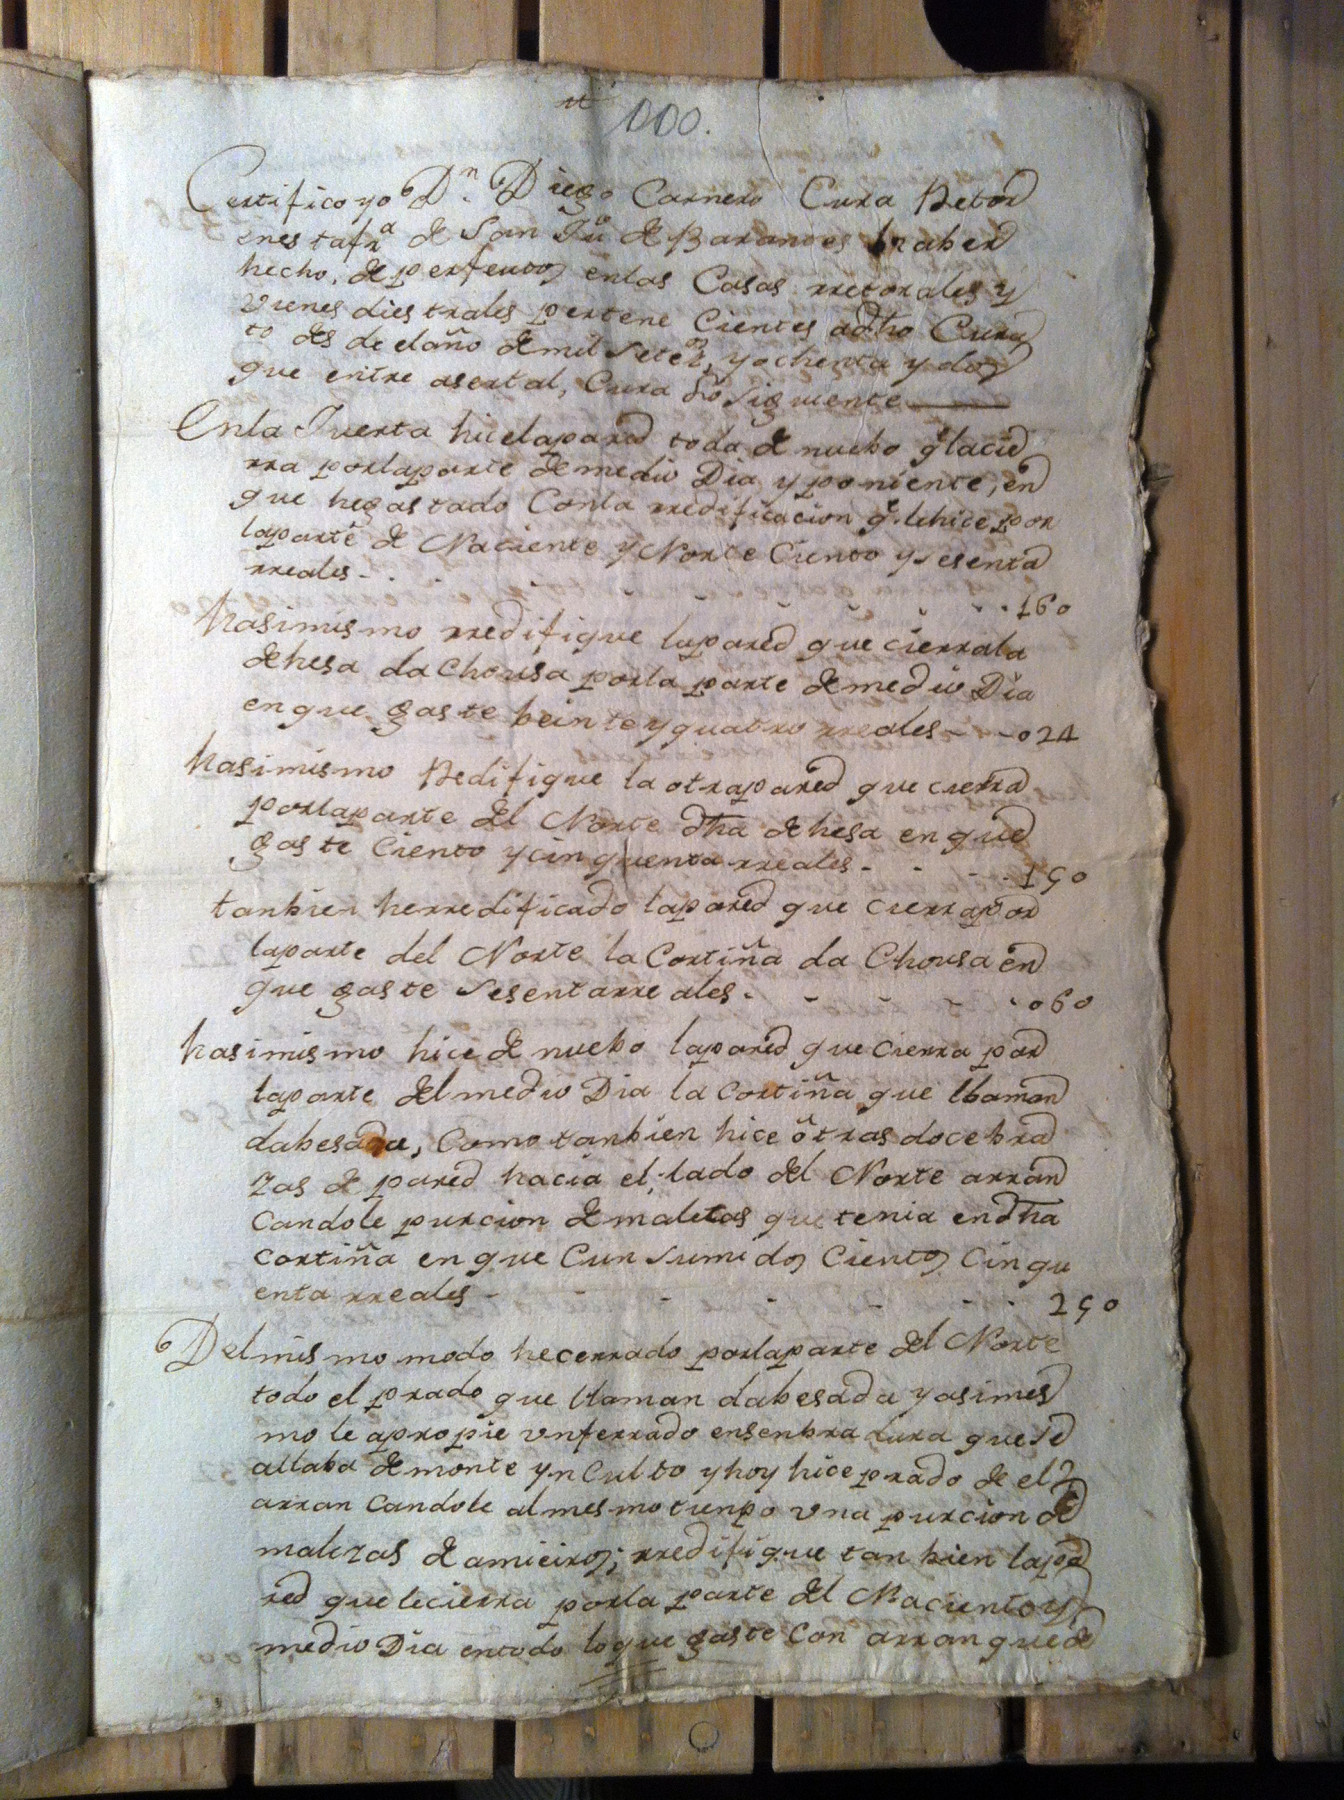 tt 100.
Certifico yo Dn. Diego Carnero Cura Retor
enestafra de San Jũ de Barantes haber
hecho, de perfeutos en las Casas rretorales y
vienes diestrales pertene Cientes adho Cura
to des de el año de mil Setes, y ochenta y dos
que entre a ser tal, Cura Lo Siguiente
En la Juerta hice la pared toda de nuebo q̃ la cie
rra por la parte de medio Dia y poniente, en
que he gastado Con la rredificacion q̃ le hice por
la parte de Naciente y Norte Ciento y sesenta
rreales - - - - - - - 160
hasimismo rredifique la pared que cierra la
dehesa da Chousa por la parte de medio Dia
en que gaste beinte y quatro rreales - - 024
hasimismo Redifique la otra pared que cierra
por la parte del Norte dha dehesa en que
gaste Ciento y cinquenta rreales - - - 150
tanbien he rredificado la pared que cierra por
la parte del Norte la Cortiña da Chousa en
que gaste Sesenta rreales - - - - - 060
hasimismo hice de nuebo la pared que Cierra por
la parte del medio Dia la Cortiña que llaman
dabesada, Como tanbien hice otras doce bra
zas de pared hacia el lado del Norte arran
candole purcion de malezas que tenia en dha
cortiña en que Cunsumi dos Cientos Cinqu
enta rreales - - - - - - 250
Del mismo modo he cerrado por la parte del Norte
todo el prado que llaman dabesada y asimes
mo le apropie un ferrado en senbradura que se
allaba de monte ynCulto y hoy hice prado de el
arran candole al mesmo tienpo vna purcion de
malezas de amieiros; rredifique tan bien la pa
red que le cierra por la parte del Naciento y
medio Dia en todo lo que gaste Con arranque de